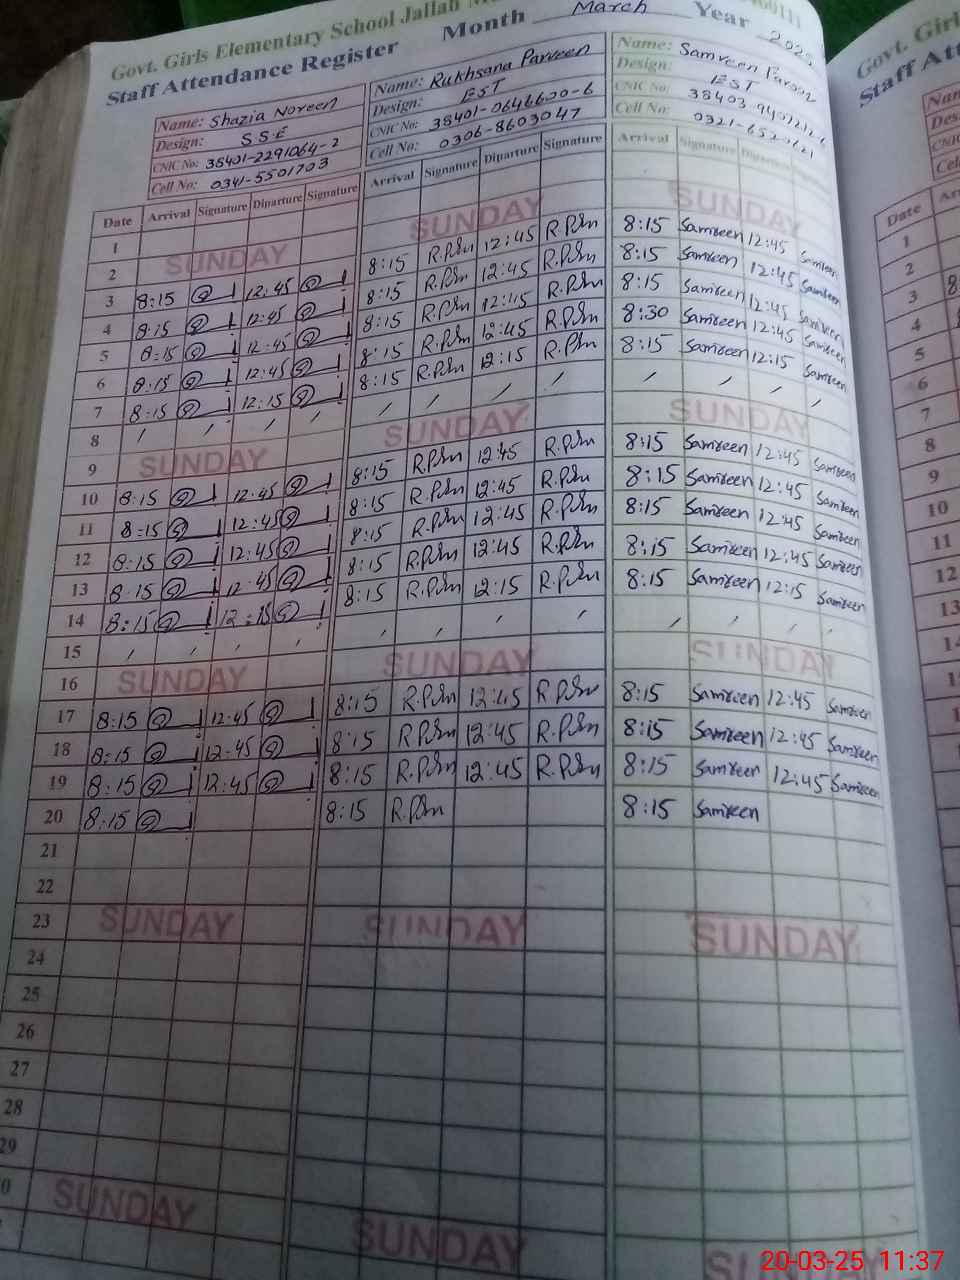 Govt. Girls Elementary School Jallah
Staff Attendance Register Month March Year 2025
Name: Shazia Noreen Name: Rukhsana Parveen Name: Samreen Farooq
Design: S.S.E Design: EST Design: EST
CNIC No: 38401-2291064-2 CNIC No: 38401-0646600-6 CNIC No:
Cell No: 0341-5501703 Cell No: 0306-8603047 Cell No:
Date Arrival Signature Diparture Signature Arrival Signature Diparture Signature Arrival Signature
1
2 SUNDAY SUNDAY SUNDAY
3 8:15 12:45 8:15 12:45 8:15 Samreen 12:45 Samreen
4 8:15 12:45 8:15 12:45 8:15 Samreen 12:45 Samreen
5 8:15 12:45 8:15 12:45 8:15 Samreen 12:45 Samreen
6 8:15 12:45 8:15 12:45 8:30 Samreen 12:45 Samreen
7 8:15 12:15 8:15 12:15 8:15 Samreen 12:15 Samreen
8 / / / / / / / / / / / /
9 SUNDAY SUNDAY SUNDAY
10 8:15 12:45 8:15 12:45 8:15 Samreen 12:45 Samreen
11 8:15 12:45 8:15 12:45 8:15 Samreen 12:45 Samreen
12 8:15 12:45 8:15 12:45 8:15 Samreen 12:45 Samreen
13 8:15 12:45 8:15 12:45 8:15 Samreen 12:45 Samreen
14 8:15 12:15 8:15 12:15 8:15 Samreen 12:15 Samreen
15 / / / / / / / / / / / /
16 SUNDAY SUNDAY SUNDAY
17 8:15 12:45 8:15 12:45 8:15 Samreen 12:45 Samreen
18 8:15 12:45 8:15 12:45 8:15 Samreen 12:45 Samreen
19 8:15 12:45 8:15 12:45 8:15 Samreen 12:45 Samreen
20 8:15 8:15 8:15 Samreen
21
22
23 SUNDAY SUNDAY SUNDAY
24
25
26
27
28
29
SUNDAY SUNDAY SUNDAY
Govt.
Staff
Date
1
2
3
4
5
6
7
8
9
10
11
12
13
20-03-25 11:37